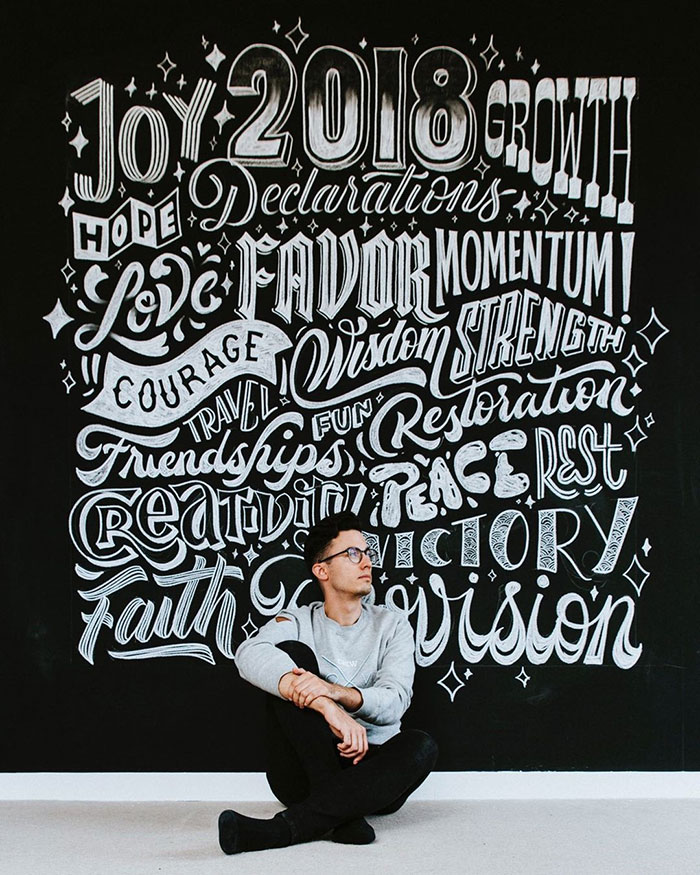 JOY 2018 GROWTH
Declarations
HOPE
Love FAVOR MOMENTUM!
COURAGE Wisdom STRENGTH
TRAVEL FUN Restoration
Friendships PEACE REST
CREATIVITY VICTORY
Faith Provision